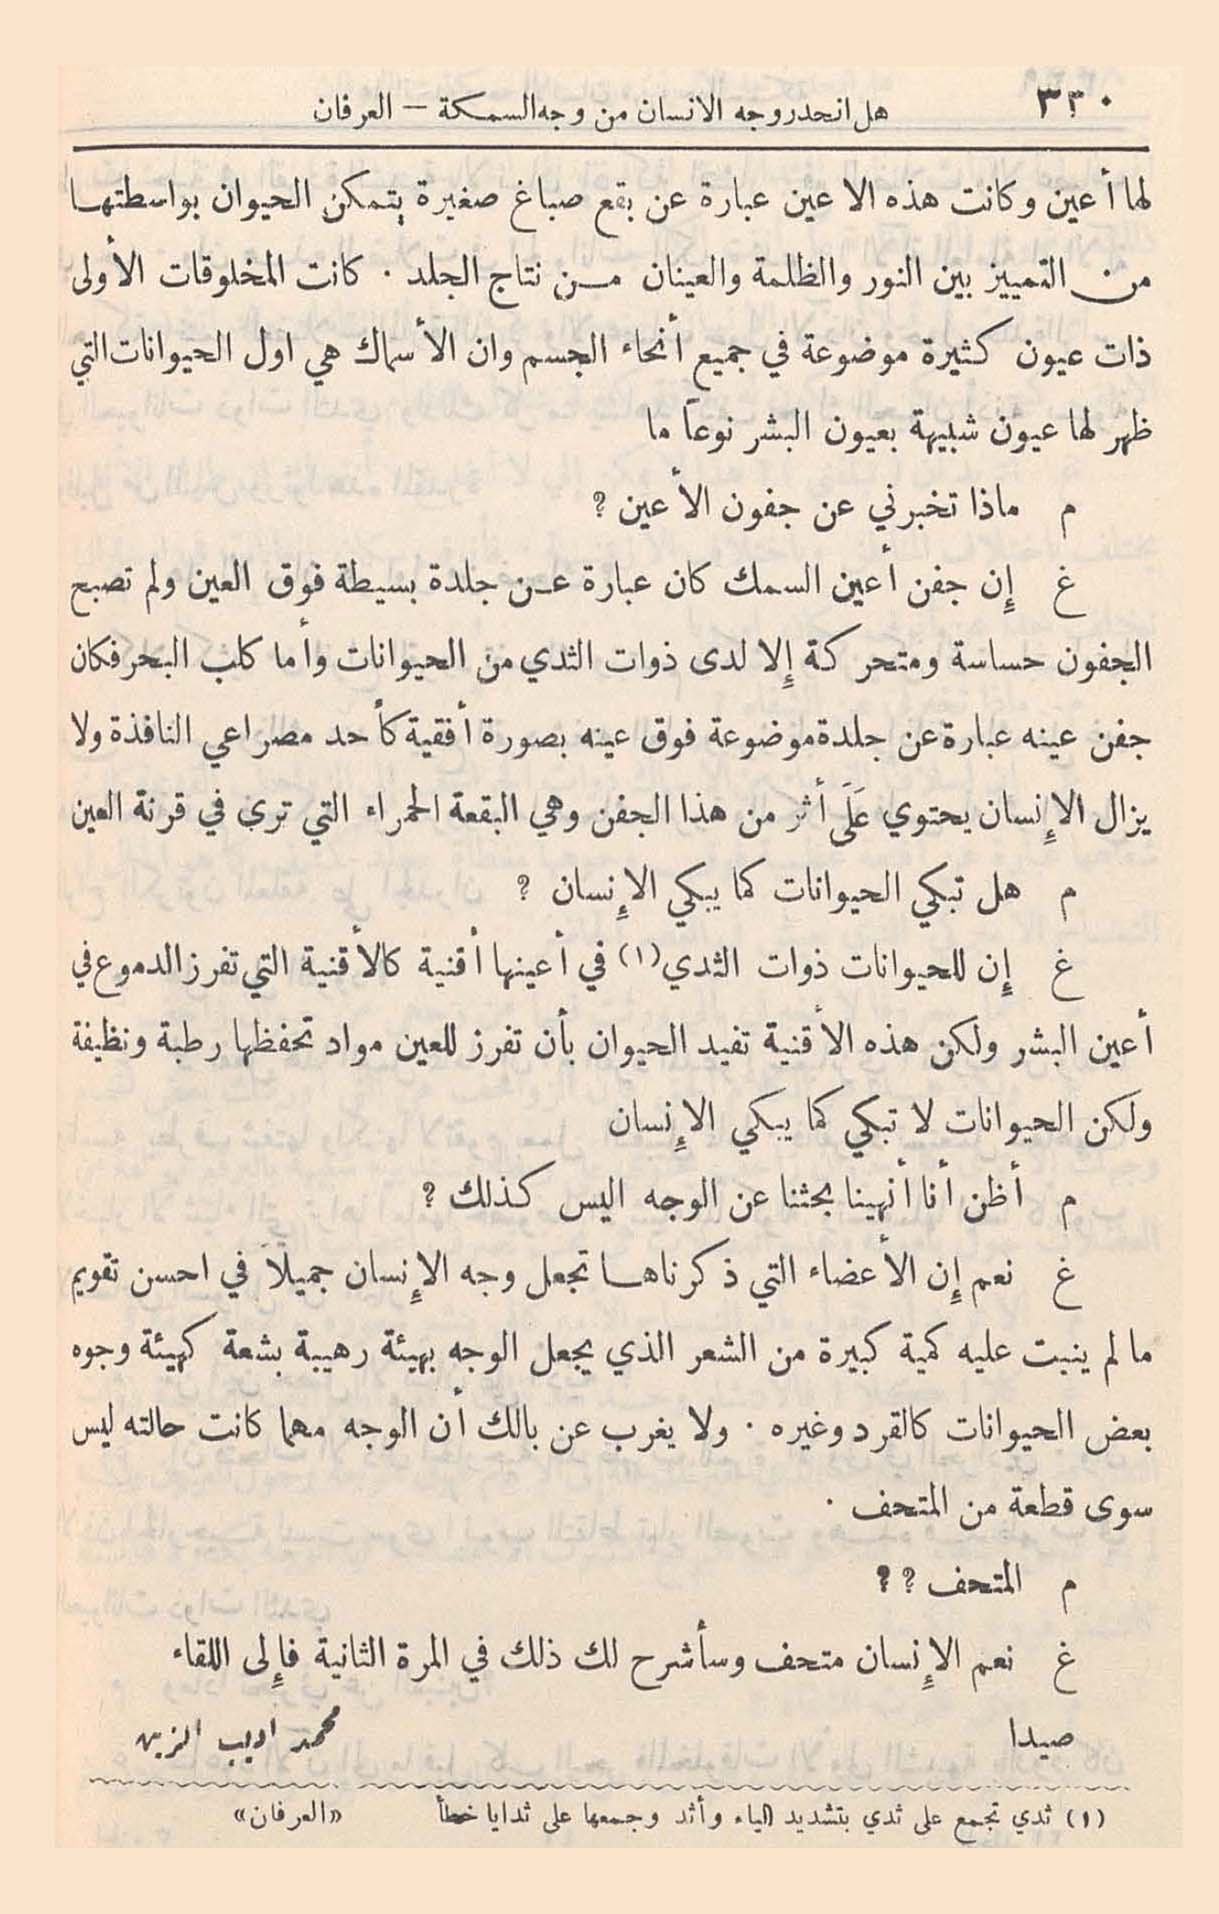 ٣٣٠
هل انحدر وجه الانسان من وجه السمكة – العرفان
لها أعين وكانت هذه الاعين عبارة عن بقع صباغ صغيرة يتمكن الحيوان بواسطتها
من التمييز بين النور والظلمة والعينان من نتاج الجلد . كانت المخلوقات الأولى
ذات عيون كثيرة موضوعة في جميع أنحاء الجسم وان الأسماك هي اول الحيوانات التي
ظهر لها عيون شبيهة بعيون البشر نوعاً ما
م ماذا تخبرني عن جفون الأعين ؟
غ إِن جفن أعين السمك كان عبارة عن جلدة بسيطة فوق العين ولم تصبح
الجفون حساسة ومتحركة إِلا لدى ذوات الثدي من الحيوانات وأما كلب البحر فكان
جفن عينه عبارة عن جلدة موضوعة فوق عينه بصورة أفقية كأحد مصراعي النافذة ولا
يزال الإِنسان يحتوي عَلَى أثر من هذا الجفن وهي البقعة الحمراء التي ترى في قرنة العين
م هل تبكي الحيوانات كما يبكي الإِنسان ؟
غ إِن للحيوانات ذوات الثدي (١) في أعينها أقنية كالأقنية التي تفرز الدموع في
أعين البشر ولكن هذه الأقنية تفيد الحيوان بأن تفرز للعين مواد تحفظها رطبة ونظيفة
ولكن الحيوانات لا تبكي كما يبكي الإِنسان
م أظن أنا أنهينا بحثنا عن الوجه اليس كذلك ؟
غ نعم إِن الأعضاء التي ذكرناها تجعل وجه الإِنسان جميلاً في احسن تقويم
ما لم ينبت عليه كمية كبيرة من الشعر الذي يجعل الوجه بهيئة رهيبة بشعة كهيئة وجوه
بعض الحيوانات كالقرد وغيره . ولا يغرب عن بالك أن الوجه مهما كانت حالته ليس
سوى قطعة من المتحف .
م المتحف ؟ ؟
غ نعم الإِنسان متحف وسأشرح لك ذلك في المرة الثانية فإِلى اللقاء
صيدا محمد اديب الزين
(١) ثدي تجمع على ثدي بتشديد الياء وأثد وجمعها على ثدايا خطأ «العرفان»